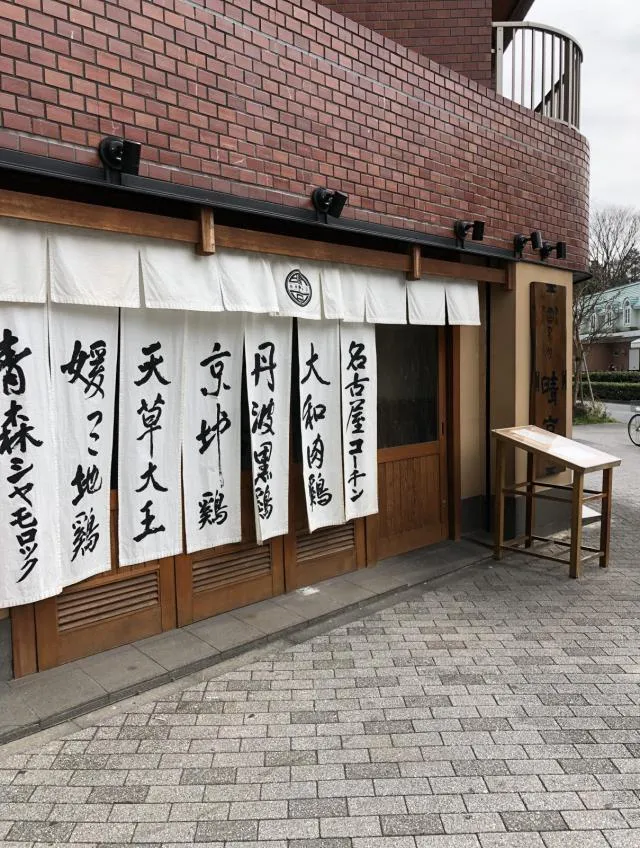 名古屋コーチン
大和肉鶏
丹波黒鶏
京地鶏
天草大王
媛っこ地鶏
青森シャモロック